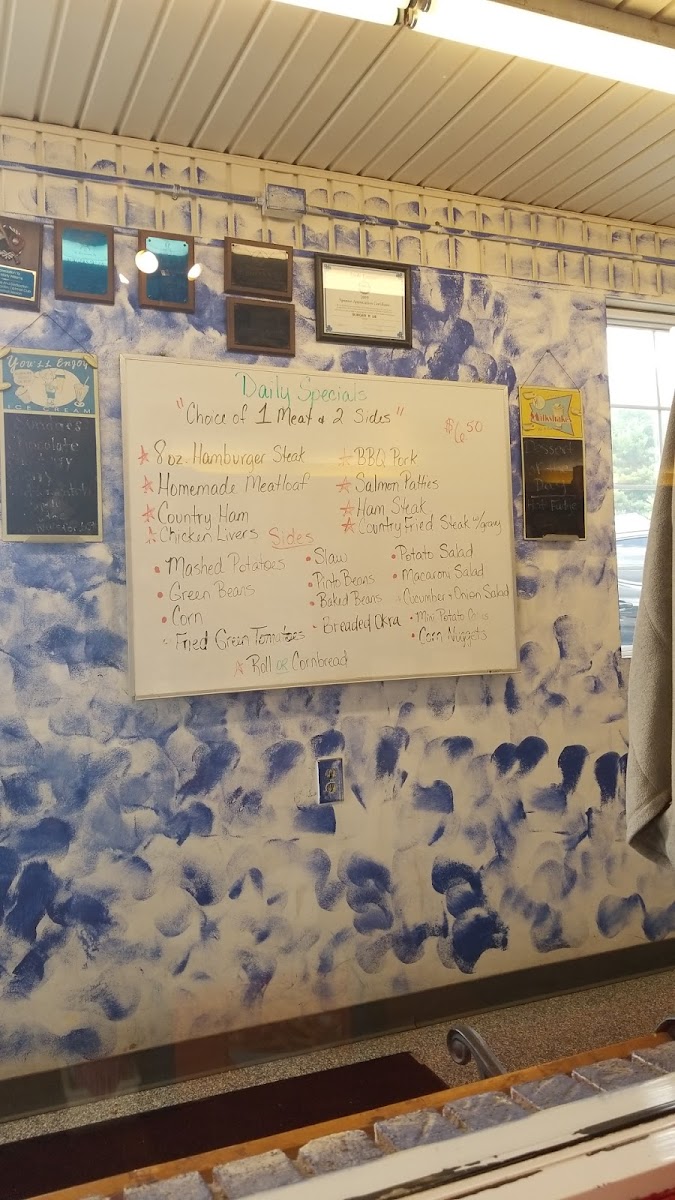 Daily Specials
"Choice of 1 Meat & 2 Sides"
$6.50
8 oz. Hamburger Steak
Homemade Meatloaf
Country Ham
Chicken Livers
BBQ Pork
Salmon Patties
Ham Steak
Country Fried Steak w/gravy
Sides
Mashed Potatoes
Green Beans
Corn
Fried Green Tomatoes
Slaw
Pinto Beans
Baked Beans
Breaded Okra
Potato Salad
Macaroni Salad
Cucumber + Onion Salad
Mini Potato
Corn Nuggets
Roll or Cornbread
You'll Enjoy
ICE CREAM
Milkshakes
Dessert
Hot Fudge